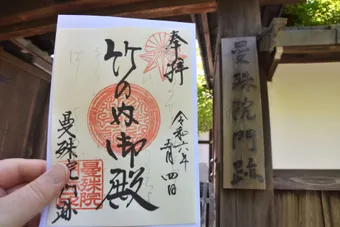 奉拝
竹の内御殿
令和六年
五月四日
曼殊院門跡
曼殊院
曼殊院門跡